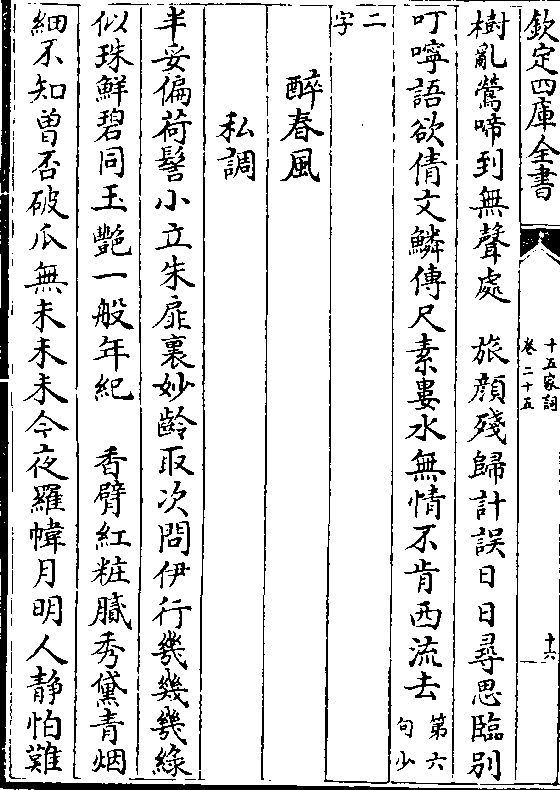 欽定四庫全書
十五家詞
卷二十五
十六
樹亂鶯啼到無聲處　旅顔殘歸計誤日日尋思臨別
叮嚀語欲倩文鱗傳尺素婁水無情不肯西流去第六句少
二字
醉春風
私調
半妥偏荷髻小立朱扉裏妙齡取次問伊行幾幾幾綠
似珠鮮碧同玉艷一般年紀　香臂紅粧膩秀黛青烟
細不知曽否破瓜無未未未今夜羅幃月明人静怕難